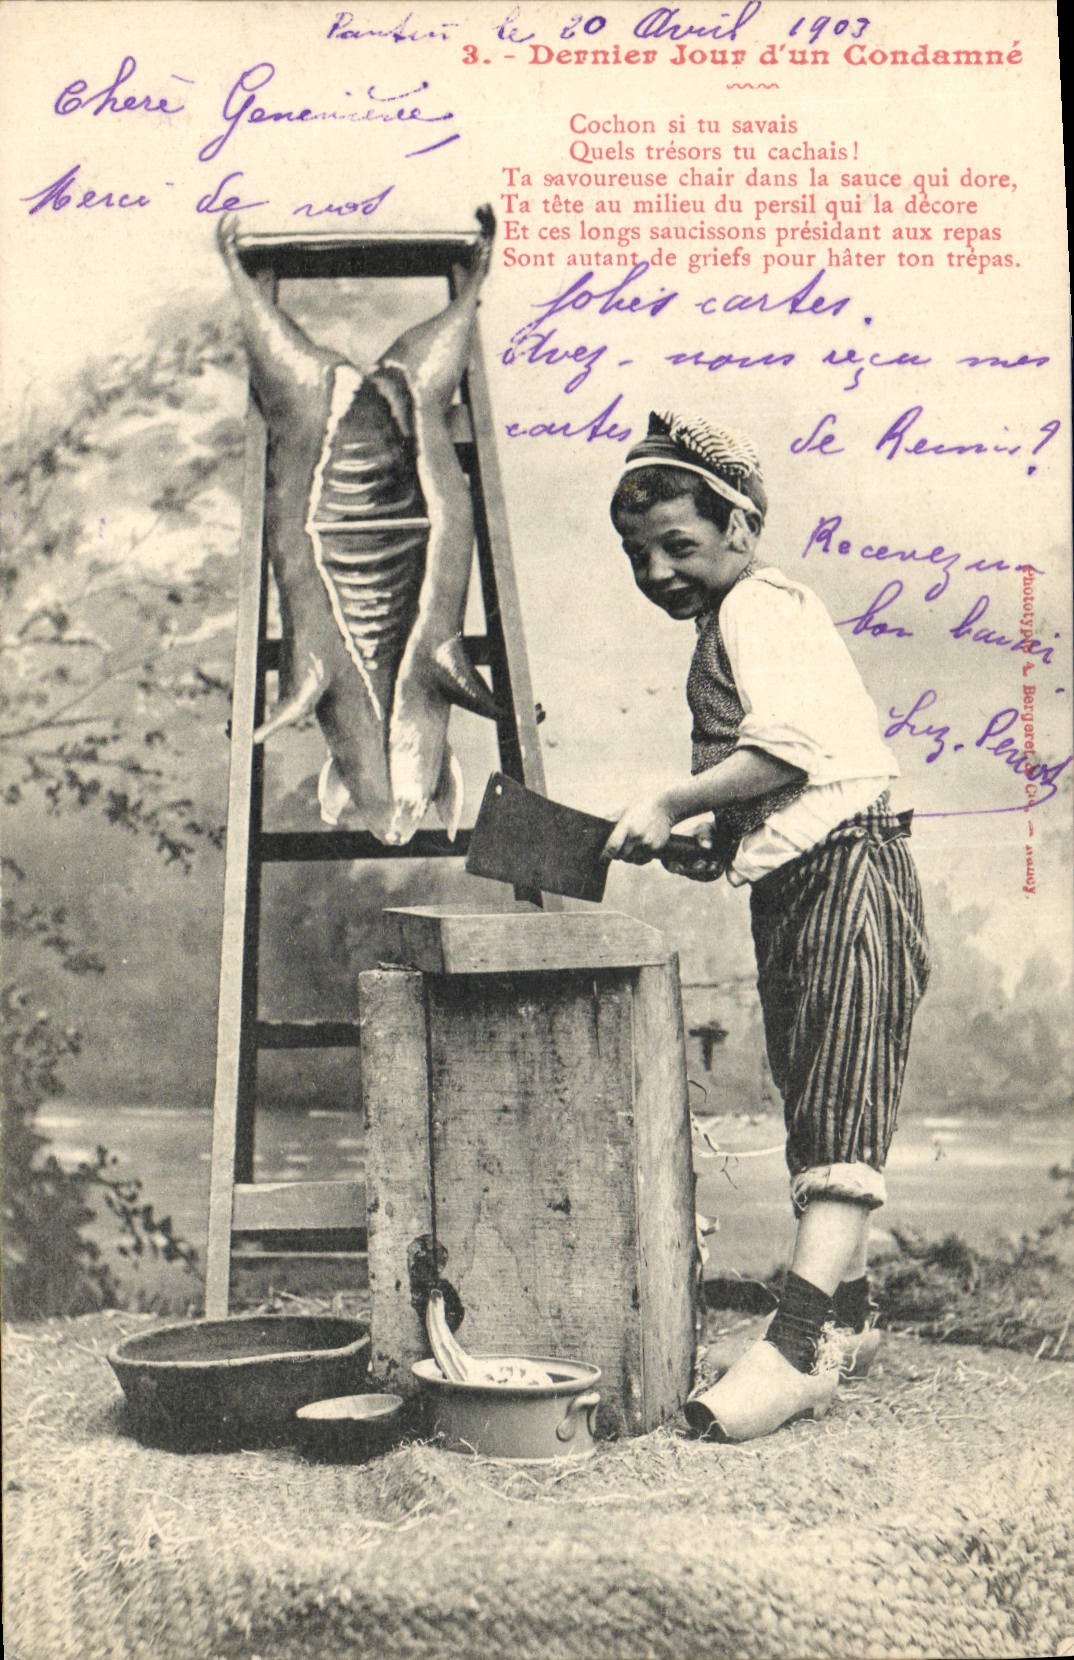 Pantin le 20 Avril 1903
3. - Dernier Jour d'un Condamné
Cochon si tu savais
Quels trésors tu cachais!
Ta savoureuse chair dans la sauce qui dore,
Ta tête au milieu du persil qui la décore
Et ces longs saucissons présidant aux repas
Sont autant de griefs pour hâter ton trépas.
Chère Geneviève,
Merci de vos
jolies cartes.
Avez-vous reçu mes
cartes de Reims?
Recevez un
bon baiser.
Phototypie A. Bergeret & Cie. — Nancy.